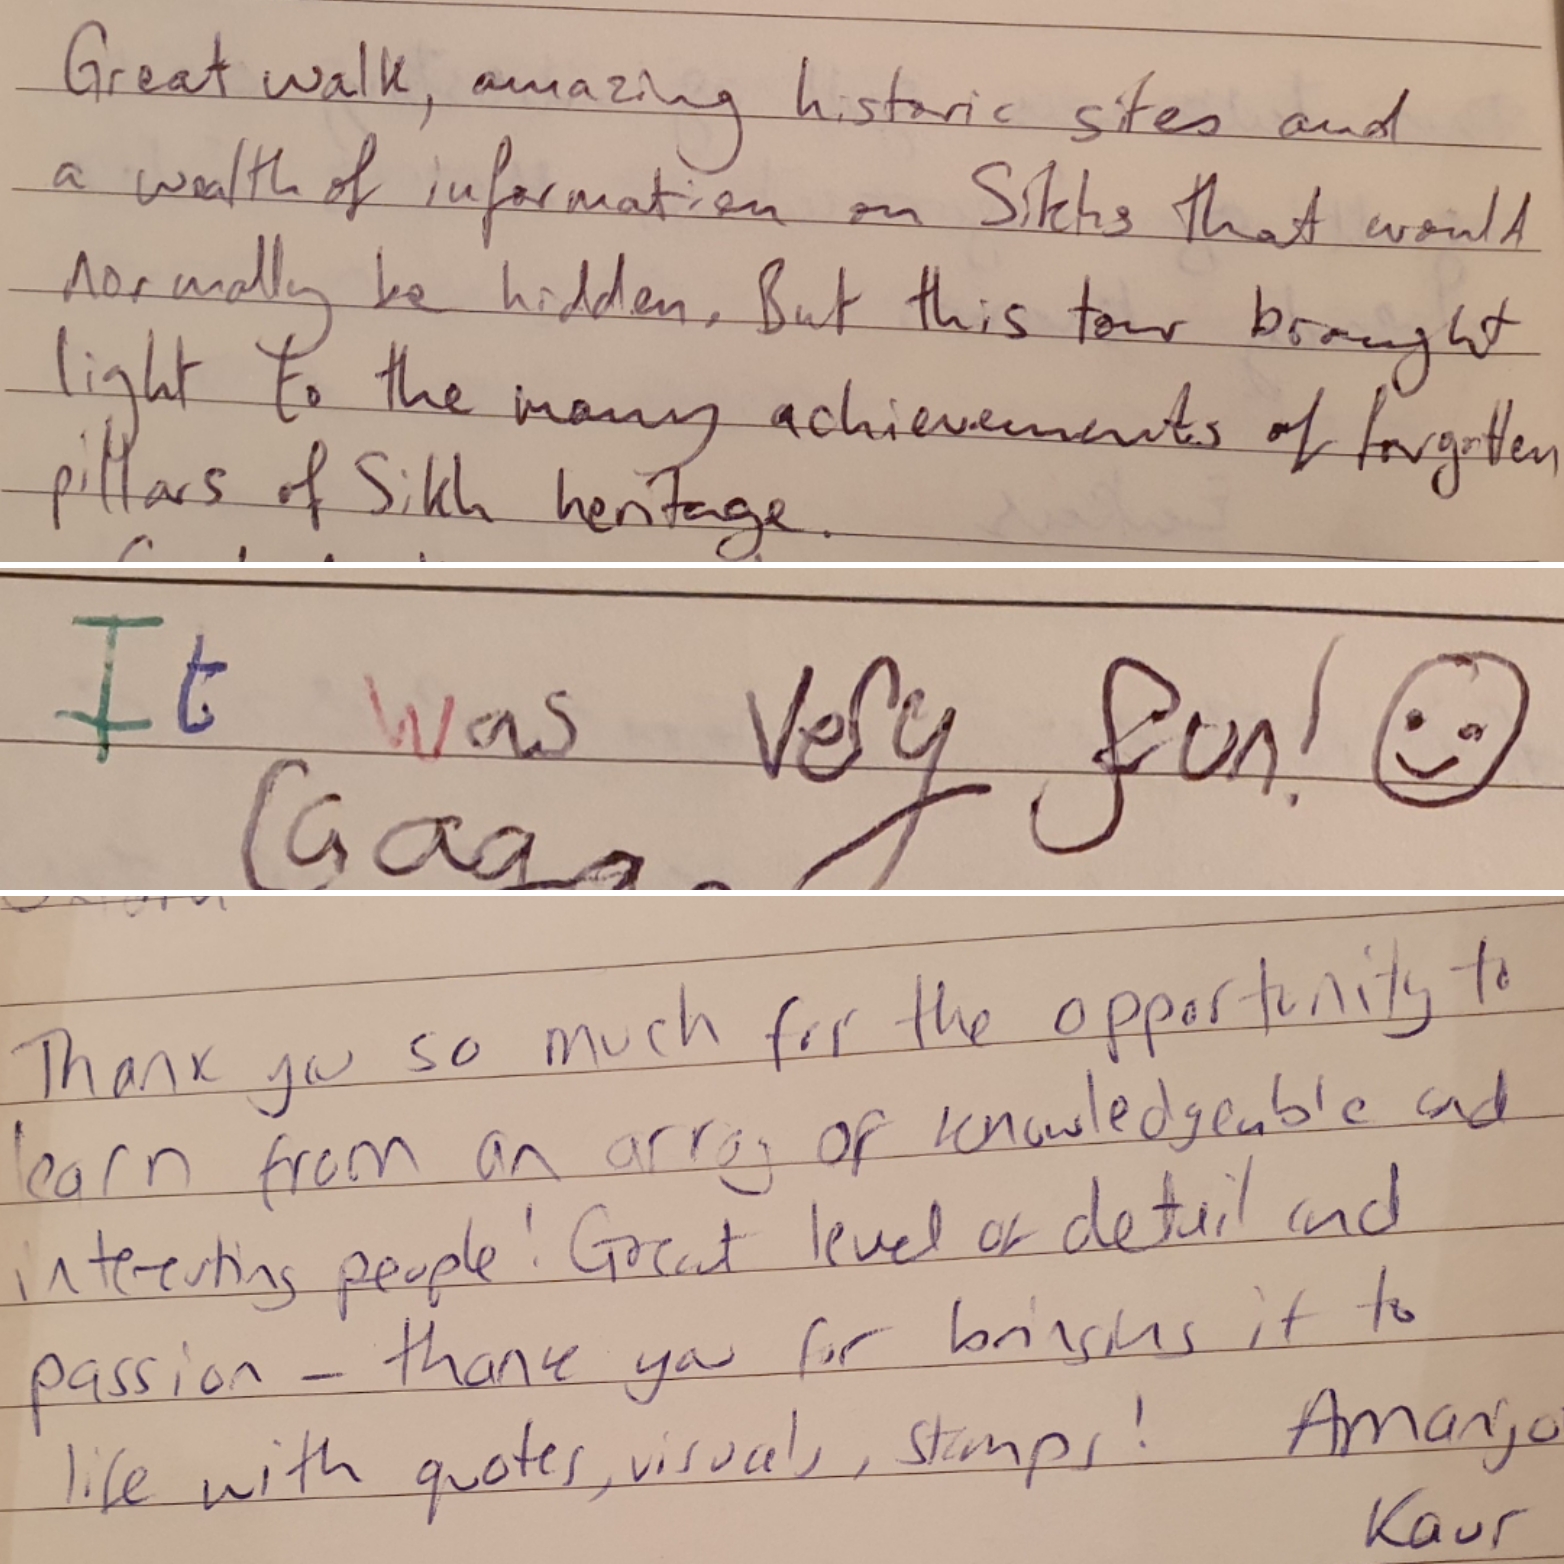 Great walk, amazing historic sites and
a wealth of information on Sikhs that would
normally be hidden. But this tour brought
light to the many achievements of forgotten
pillars of Sikh heritage.
It was very fun!
Thank you so much for the opportunity to
learn from an array of knowledgeable and
interesting people! Great level of detail and
passion - thank you for bringing it to
life with quotes, visuals, stamps! Amanjo
Kaur